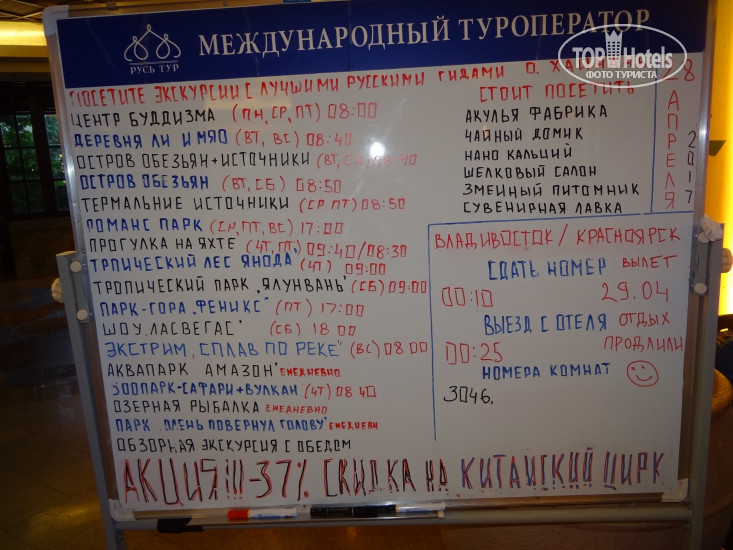 МЕЖДУНАРОДНЫЙ ТУРОПЕРАТОР
РУСЬ ТУР
TOP Hotels
ФОТО ТУРИСТА
ПОСЕТИТЕ ЭКСКУРСИИ С ЛУЧШИМИ РУССКИМИ ГИДАМИ О.
ЦЕНТР БУДДИЗМА (ПН, СР, ПТ) 08:00
ДЕРЕВНЯ ЛИ И МЯО (ВТ, ВС) 08:40
ОСТРОВ ОБЕЗЬЯН+ИСТОЧНИКИ (ВТ, 08:40
ОСТРОВ ОБЕЗЬЯН (ВТ, СБ) 08:50
ТЕРМАЛЬНЫЕ ИСТОЧНИКИ (СР ПТ) 08:50
РОМАНС ПАРК (СН, ПТ, ВС) 17:00
ПРОГУЛКА НА ЯХТЕ (ЧТ, ПТ) 09:40/08:30
ТРПИЧЕСКИЙ ЛЕС ЯНОДА (ЧТ) 09:00
ТРОПИЧЕСКИЙ ПАРК „ЯЛУНВАНЬ" (СБ) 09:00
ПАРК-ГОРА „ФЕНИКС" (ПТ) 17:00
ШОУ „ЛАСВЕГАС" (СБ) 18 00
ЭКСТРИМ, СПЛАВ ПО РЕКЕ" (ВС) 08 00
АКВАПАРК АМАЗОН" ЕЖЕДНЕВНО
ЗООПАРК-САФАРИ+ВУЛКАН (ЧТ) 08 40
ОЗЕРНАЯ РЫБАЛКА ЕЖЕДНЕВНО
ПАРК „ОЛЕНЬ ПОВЕРНУЛ ГОЛОВУ" ЕЖЕДНЕВН
ОБЗОРНАЯ ЭКСКУРСИЯ С ОБЕДОМ
СТОИТ ПОСЕТИТЬ
АКУЛЬЯ ФАБРИКА
ЧАЙНЫЙ ДОМИК
НАНО КАЛЬЦИЙ
ШЕЛКОВЫЙ САЛОН
ЗМЕИНЫЙ ПИТОМНИК
СУВЕНИРНАЯ ЛАВКА
28 АПРЕЛЯ
2017
ВЛАДИВОСТОК / КРАСНОЯРСК
СДАТЬ НОМЕР ВЫЛЕТ
00:10 29.04
ВЫЕЗД С ОТЕЛЯ ОТДЫХ
00:25 ПРОДЛИЛИ
НОМЕРА КОМНАТ
3046.
АКЦИЯ!!! -37% СКИДКА НА КИТАЙСКИЙ ЦИРК